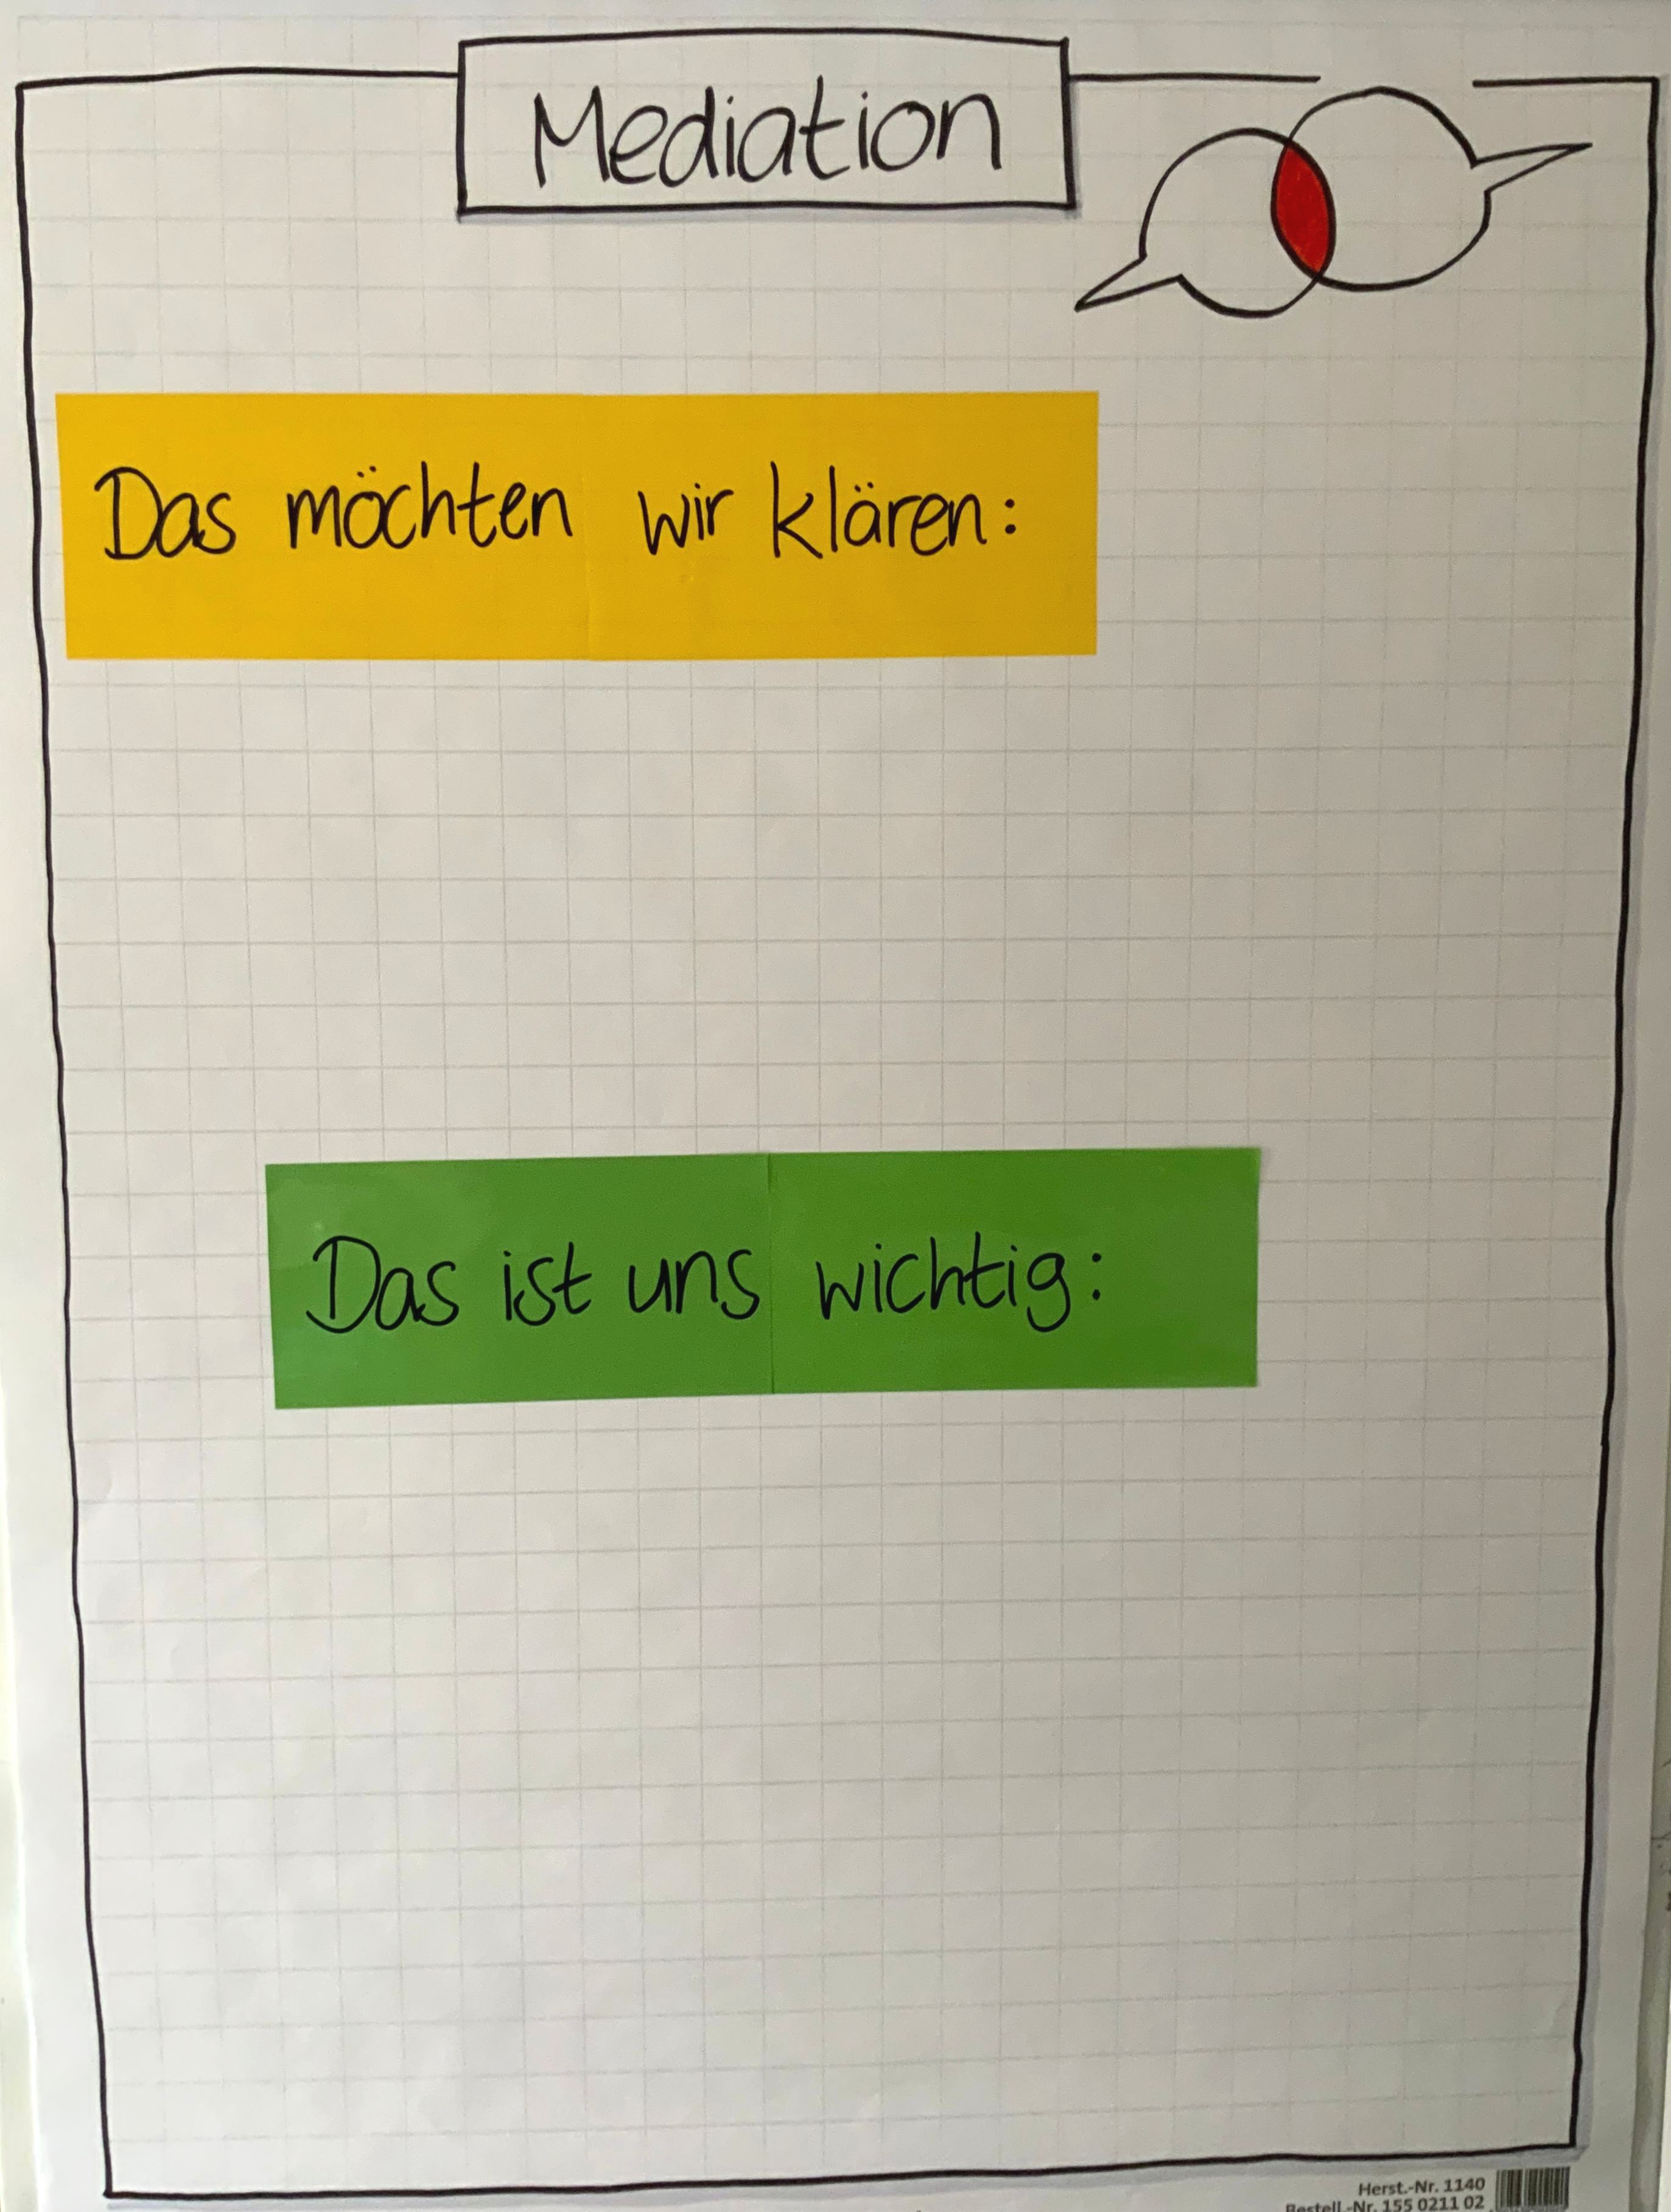 Mediation
Das möchten wir klären:
Das ist uns wichtig:
Herst.-Nr. 1140
Bestell.-Nr. 155 0211 02